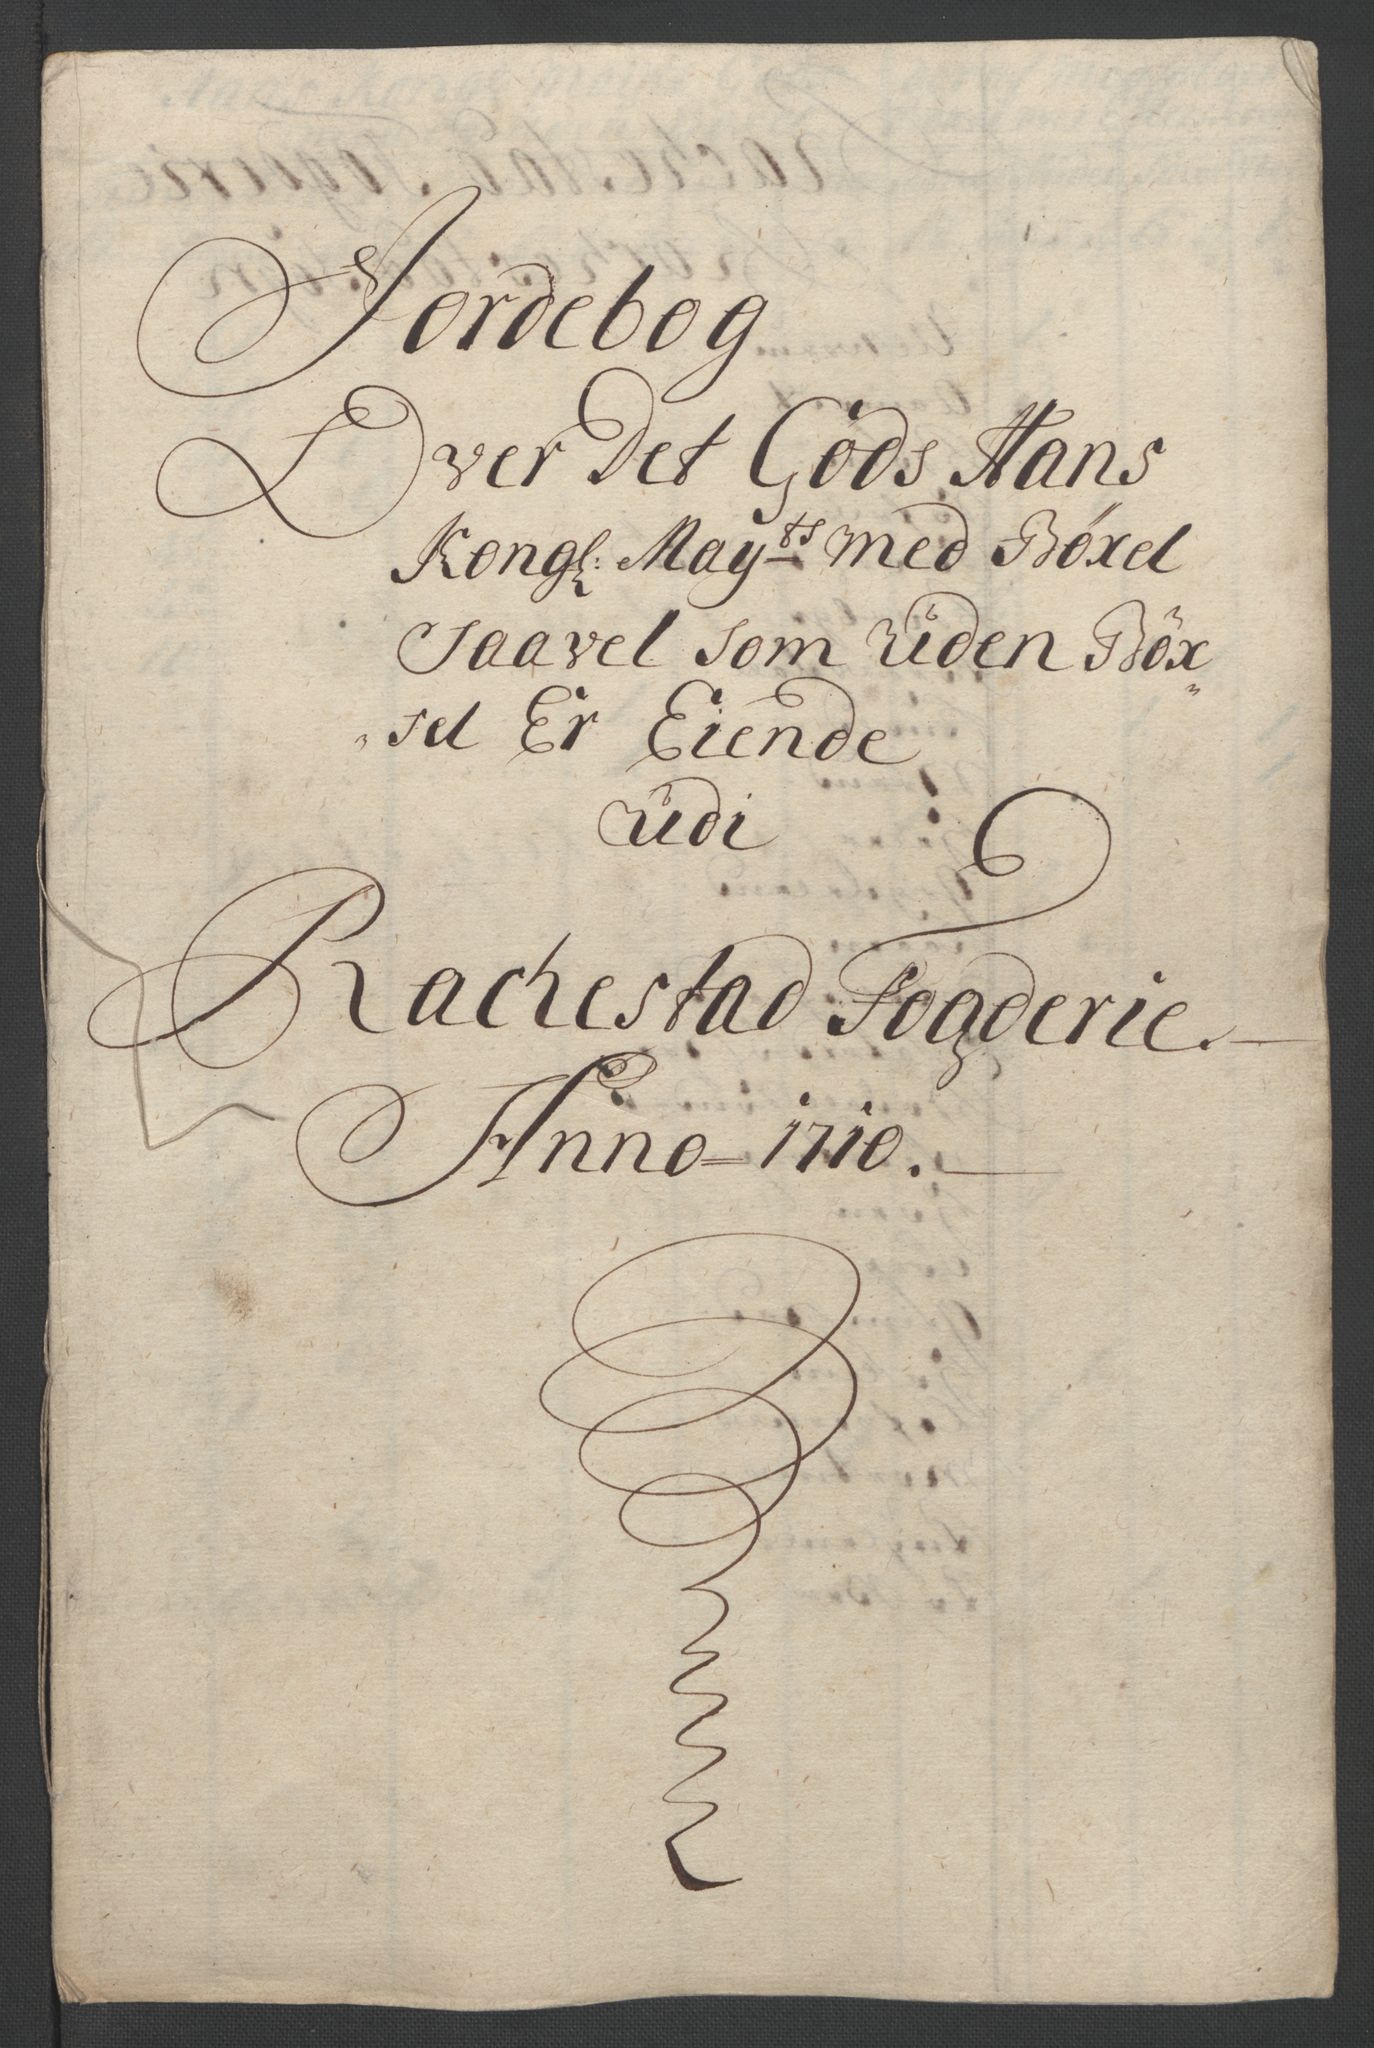 Jordebog
Over Det Gods Hans
Kongl: Mayts med Böxel
Saavel som üden Böx
„sel Er Eiende
üdi
Rachestad Fogderie.
Anno 1710.